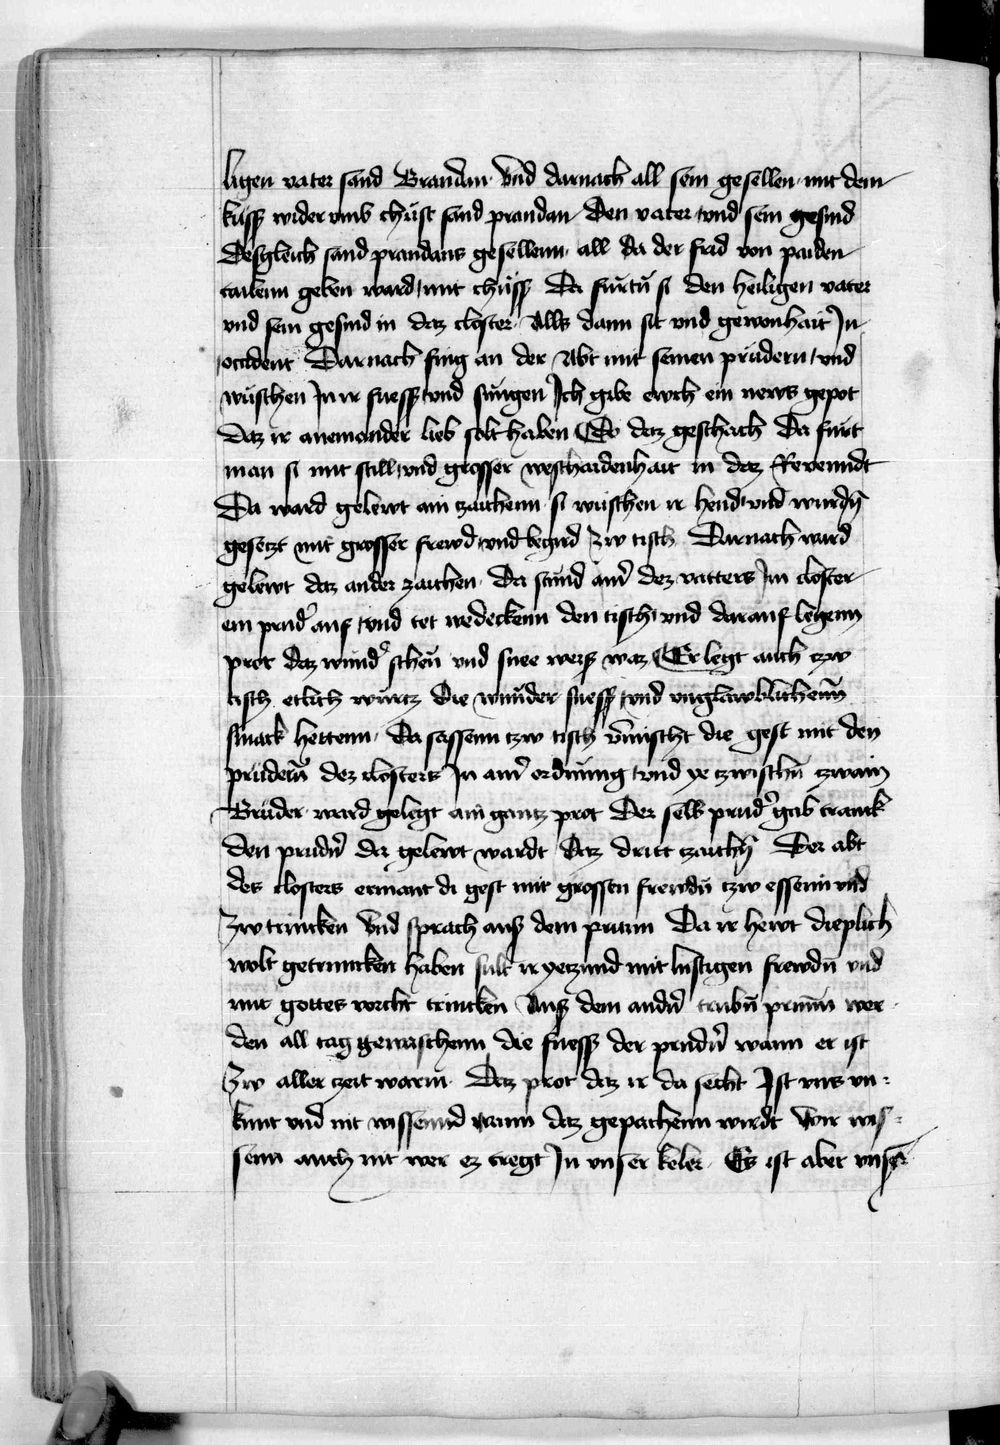 ligen vater sand Brandan Vnd darnach all sein gesellen mit dem
kuss wider vmb chust sand prandan Den vater vnd sein gesind
Desgleich sand prandans gesellenn all Da der frid von paiden
tailenn geben ward mit chuss Da furtn si den heiligen vater
vnd sein gesind in daz closter Alls dann sit vnd gewonhait In
occident Darnach fing an der Abt mit seinen prüdern vnd
wüschen In ir fuess vnd sungen Ich gibe ewch ein news gepot
Daz ir aneinander lieb solt haben Do daz geschach Da furt
man si mit still vnd grosser weschaidenhait in daz Reuennt
Da ward gelewt ain zaichenn si wuschen ir hend vnd wurdn̄
gesetzt mit grosser frewd vnd begird Zw tisch Darnach ward
gelewt daz ander zaichen Da stund ainr̄ dez vatters Im closter
ein prud̉ auf vnd tet wedeckenn den tisch vnd darauf legenn
prot daz wund̉ schen̄ vnd snee weis waz Er legt auch tzw
tisch etlich würtz Die wunder suess vnd vnglawblichenn̄
smack hettenn Da sassenn tzw tisch v̄muscht die gest mit den
prüdern̄ dez closters In ainr̄ ordnung vnd ye tzwischn̄ tzwain
Brüder ward gelegt ain gantz prot Der selb prud̉ gab tranck
den prudn̉ da gelewt wardt Daz dritt tzaichn̄ Der abt
des closters ermant di gest mit grossen frewdn̄ tzw essenn vnd
Zw trincken Vnd sprach auss dem prunn Da ir hewt dieplich
wolt getruncken haben sult ir yetzund mit lustigen frewdn̄ vnd
mit gottes vorcht trincken Auss dem andn̉ trubn̄ prunn̄ wer
den all tag gewaschenn die fuess der prudn̉ wann er ist
Zw aller zeit warm Daz prot daz ir da secht Ist vns vn=
kunt vnd nit wissennd wann daz gepachenn wirdt Wir wis=
senn auch nit wer ez tregt In vnser keler Es ist aber vnser̄